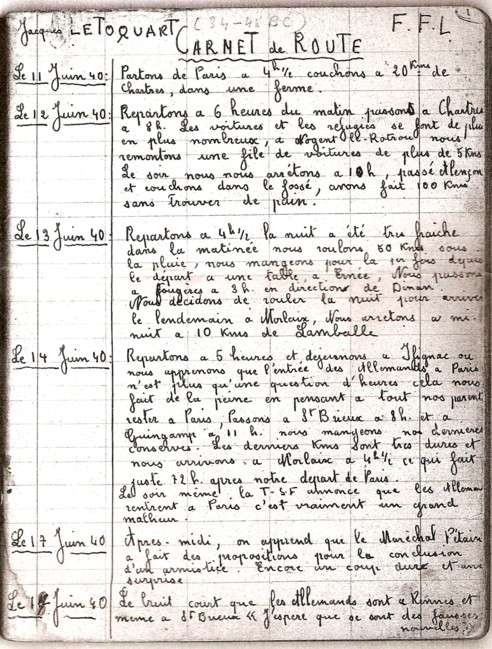 Jacques LETOQUART (34-48 BC) F.F.L
1
CARNET de ROUTE
Le 11 Juin 40: Partons de Paris a 4h½ couchons a 20 Kms de
Chartres, dans une ferme.
Le 12 Juin 40: Repartons a 6 heures du matin passons a Chartres
a 8h. Les voitures et les refugies se font de plus
en plus nombreux, a Nogent le-Rotrou nous
remontons une file de voitures de plus de 5 Kms
Le soir nous nous arretons a 10h, passé Alençon
et couchons dans le fossé, avons fait 100 Kms
sans trouver de pain.
Le 13 Juin 40: Repartons a 4h½ la nuit a été tres fraiche
dans la matinée nous roulons, 50 Kms sous
la pluie, nous mangeons pour la 1re fois depuis
le départ a une table a Ernée, Nous passons
a Fougères a 3h. en direction de Dinan.
Nous decidons de rouler la nuit pour arriver
le lendemain a Morlaix, Nous arretons a mi-
nuit a 10 Kms de Lamballe
Le 14 Juin 40: Repartons a 5 heures et dejeunons a Yfignac ou
nous apprenons que l'entrée des Allemands a Paris
n'est plus qu'une question d'heures cela nous
fait de la peine en pensant a tout nos parents
rester a Paris, Passons a St Brieux a 8h. et a
Guingamp a 11 h. nous mangeons nos dernieres
conserves. Les derniers Kms sont tres dures et
nous arrivons a Morlaix a 4h½ ce qui fait
juste 72 h. apres notre depart de Paris.
Le soir même la T-S-F annonce que les Allemands
rentrent a Paris c'est vraiment un grand
malheur.
Le 17 Juin 40 Apres-midi, on apprend que le Maréchal Pétain
a fait des propositions pour la conclusion
d'un armistice. Encore un coup dure et une
surprise
Le Juin 40 Le bruit court que les Allemands sont a Rennes et
meme a St Brieux « J'espere que se sont des fausses
nouvelles »